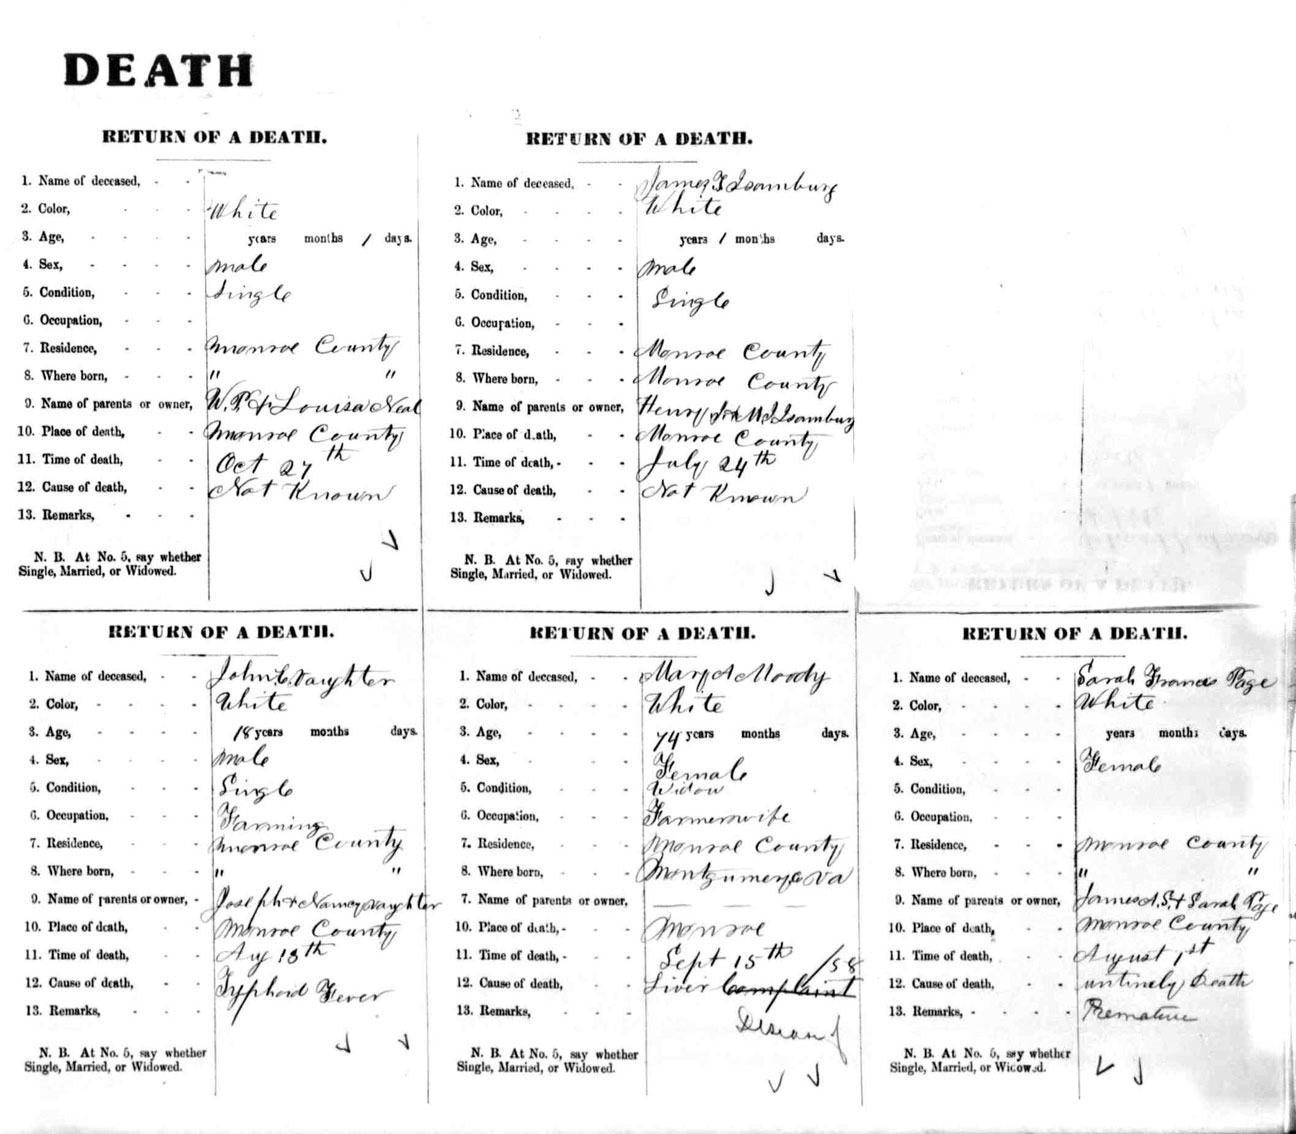 DEATH
RETURN OF A DEATH.
1. Name of deceased, - -
2. Color, - - - - White
3. Age, - - - - years months 1 days.
4. Sex, - - - - male
5. Condition, - - - Single
6. Occupation, - - -
7. Residence, - - - Monroe County
8. Where born, - - - " "
9. Name of parents or owner, W. P. & Louisa Neal
10. Place of death, - - Monroe County
11. Time of death, - - Oct 27th
12. Cause of death, - - Not Known
13. Remarks, - - -
N. B. At No. 5, say whether
Single, Married, or Widowed.
RETURN OF A DEATH.
1. Name of deceased, - - James Isamburg
2. Color, - - - - White
3. Age, - - - - years 1 months days.
4. Sex, - - - - male
5. Condition, - - - Single
6. Occupation, - - -
7. Residence, - - - Monroe County
8. Where born, - - - Monroe County
9. Name of parents or owner, Henry Isamburg
10. Place of death, - - Monroe County
11. Time of death, - - - July 24th
12. Cause of death, - - Not Known
13. Remarks, - - -
N. B. At No. 5, say whether
Single, Married, or Widowed.
RETURN OF A DEATH.
1. Name of deceased, - - John C. Vaughter
2. Color, - - - - White
3. Age, - - - - 18 years months days.
4. Sex, - - - - male
5. Condition, - - - Single
6. Occupation, - - - Farming
7. Residence, - - - Monroe County
8. Where born, - - - " "
9. Name of parents or owner, - Joseph & Nancy Vaughter
10. Place of death, - - Monroe County
11. Time of death, - - Aug 13th
12. Cause of death, - - Typhoid Fever
13. Remarks, - - -
N. B. At No. 5, say whether
Single, Married, or Widowed.
RETURN OF A DEATH.
1. Name of deceased, - - Mary A Moody
2. Color, - - - - White
3. Age, - - - - 74 years months days.
4. Sex, - - - - Female
5. Condition, - - - Widow
6. Occupation, - - - Farmerswife
7. Residence, - - - Monroe County
8. Where born, - - - Montgumery Co Va
7. Name of parents or owner, — — —
10. Place of death, - - Monroe
11. Time of death, - - - Sept 15th /58
12. Cause of death, - - Liver Complaint
13. Remarks, - - -
N. B. At No. 5, say whether
Single, Married, or Widowed.
RETURN OF A DEATH.
1. Name of deceased, - - Sarah Frances Page
2. Color, - - - - White
3. Age, - - - - years months days.
4. Sex, - - - - Female
5. Condition, - - -
6. Occupation, - - -
7. Residence, - - - Monroe County
8. Where born, - - - " "
9. Name of parents or owner, James A. S. & Sarah Page
10. Place of death, - - Monroe County
11. Time of death, - - August 1st
12. Cause of death, - - untimely Death
13. Remarks, - - - - Premature
N. B. At No. 5, say whether
Single, Married, or Widowed.